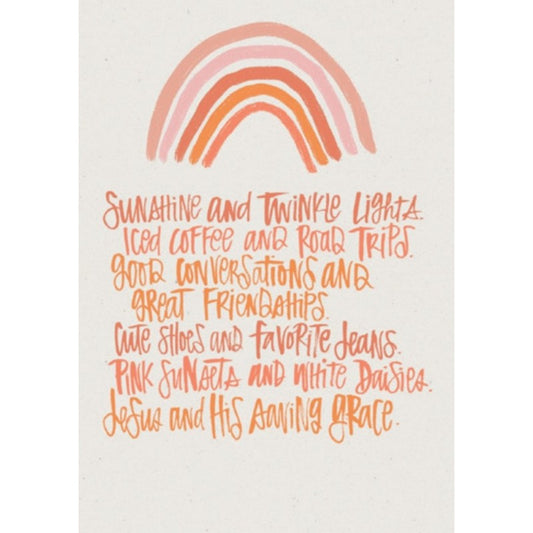 Sunshine and Twinkle Lights.
Iced Coffee and Road Trips.
Good Conversations and
Great Friendships.
Cute Shoes and Favorite Jeans.
Pink Sunsets and White Daisies.
Jesus and His Saving Grace.